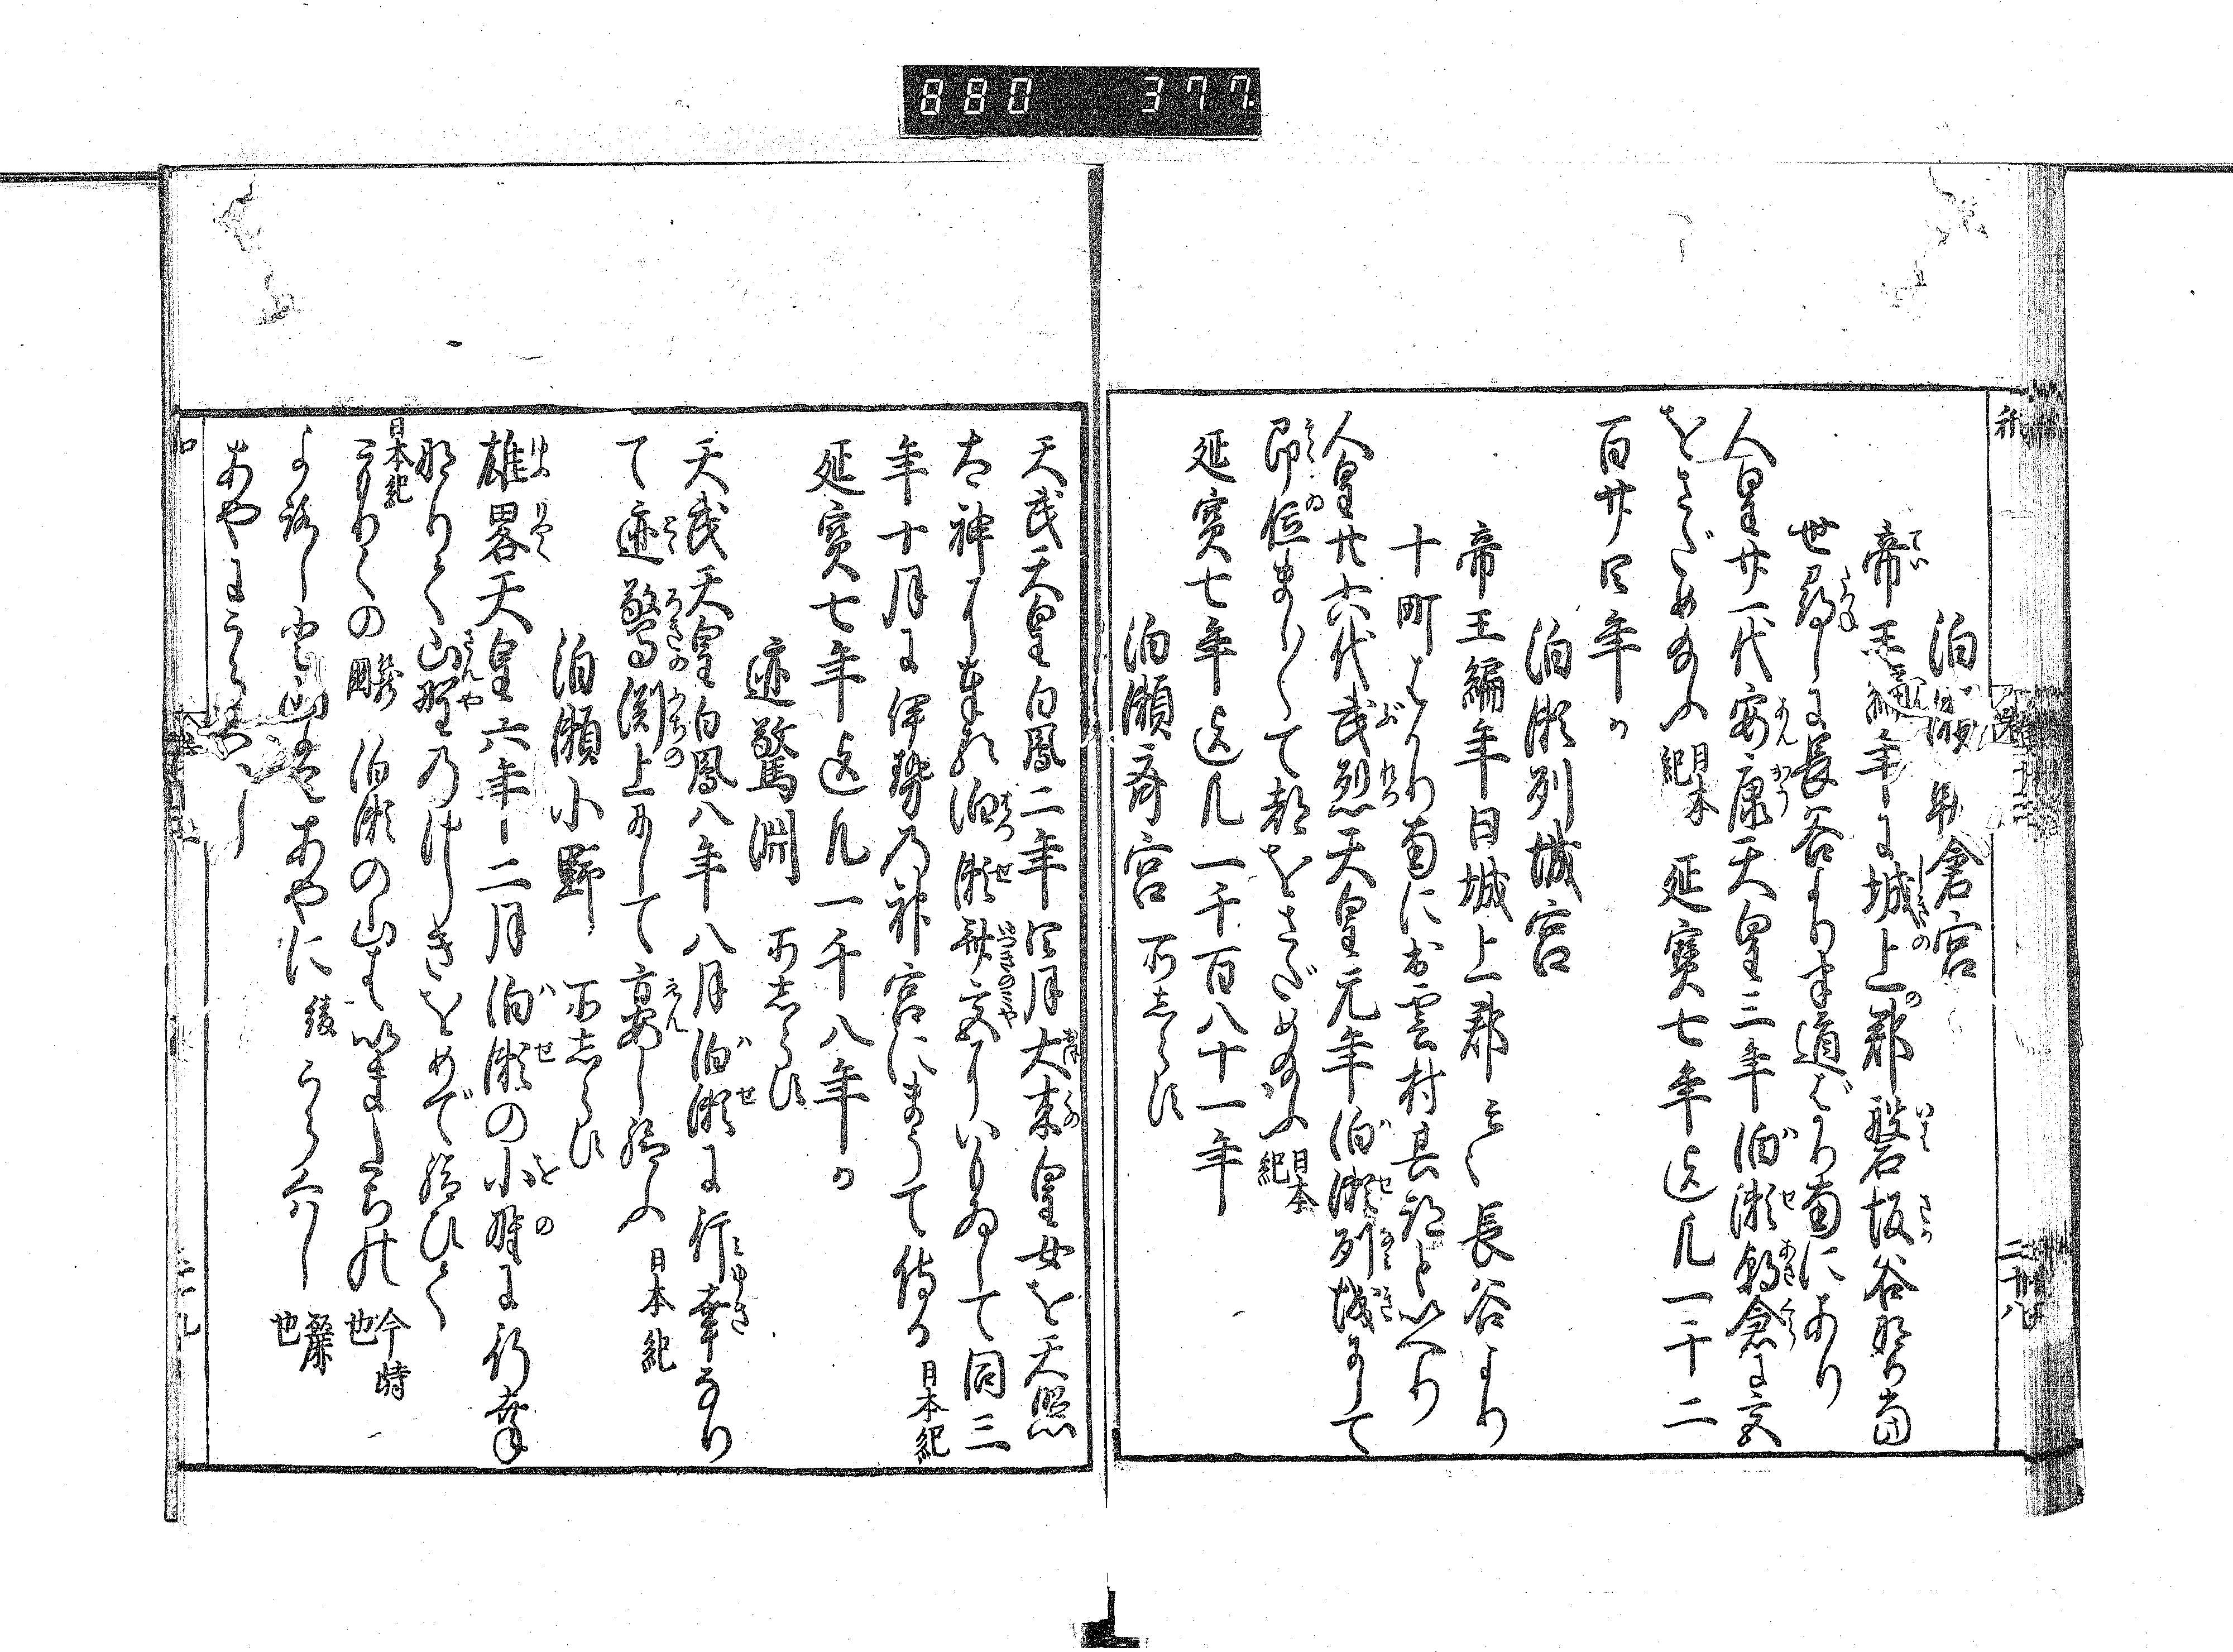 880 377
泊瀬朝倉宮
帝王編年に城上郡磐坂谷也
世尋しに長谷より半道ばかり南にあり
人皇廿一代安康天皇三年泊瀬朝倉に宮
をさだめ給ふ日本紀 延寶七年迄凡一千二
百廿四年か
泊瀬列城宮
帝王編年曰城上郡云〻長谷より
十町ばかり南に出雲村
人皇廿六代武烈天皇元年泊瀬列城にして
即位ましまして都をさだめ給ふ日本紀
延寶七年迄凡一千百八十一年
泊瀬斎宮 所志らす
天武天皇白鳳二年四月大来皇女を天照
太神に奉れ泊瀬斎宮にいもゐして同三
年十月に伊勢乃神宮にまうて侍る日本紀
延寶七年迄凡一千八年か
迹驚淵 所志らす
天武天皇白鳳八年八月泊瀬に行幸なり
て迹驚淵上にして宴し給ふ日本紀
泊瀬小野 所志らす
雄畧天皇六年二月泊瀬の小野に行幸
なりて山野乃けしきをめで給ひて
日本紀
こもりくの 泊瀬の山はいましたちの 今時也
よろしき山はあやに 後うらくはし 麗也
あやにうらくはし
二十八